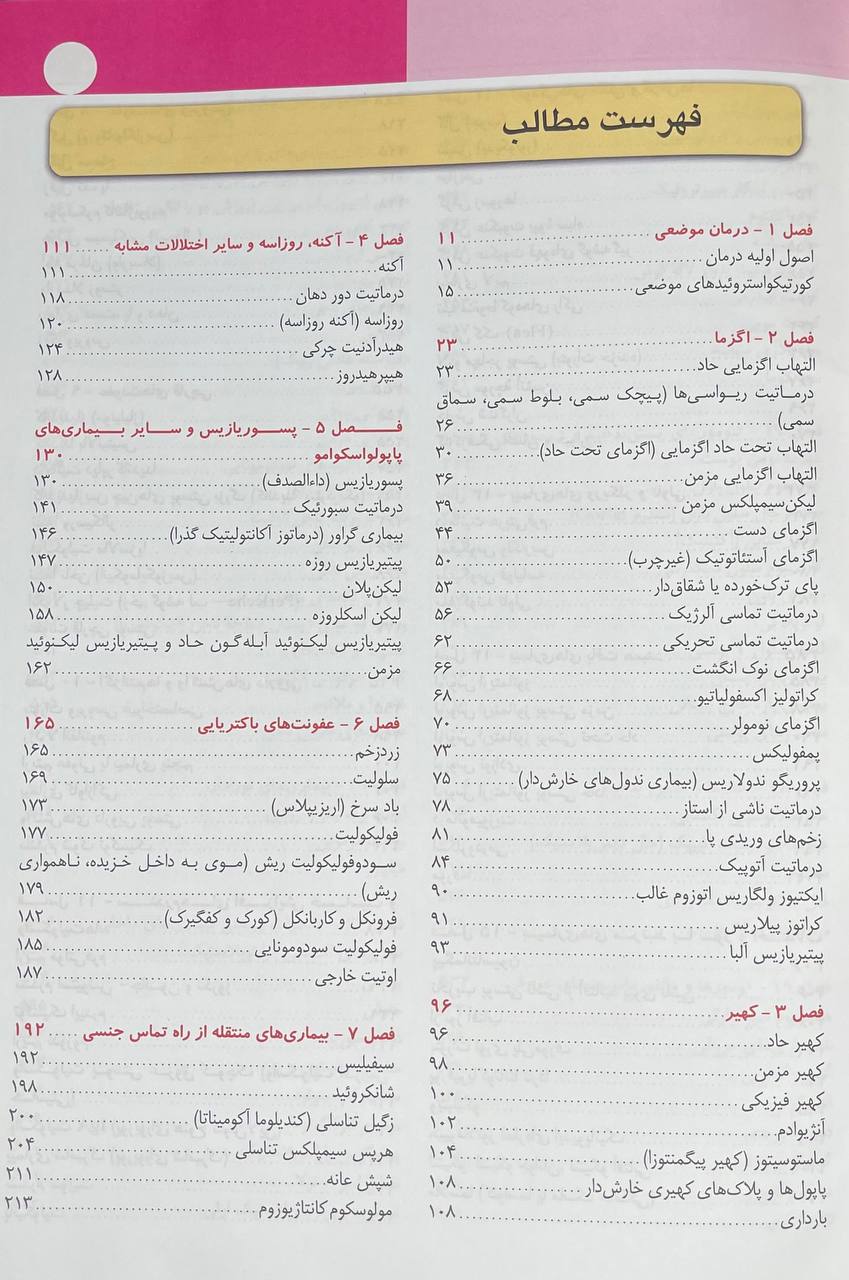 فهرست مطالب
فصل ۱ - درمان موضعی ۱۱
اصول اولیه درمان ۱۱
کورتیکواستروئیدهای موضعی ۱۵
فصل ۲ - اگزما ۲۳
التهاب اگزمایی حاد ۲۳
درماتیت ریواسی‌ها (پیچک سمی، بلوط سمی، سماق
سمی) ۲۶
التهاب تحت حاد اگزمایی (اگزمای تحت حاد) ۳۰
التهاب اگزمایی مزمن ۳۶
لیکن‌سیمپلکس مزمن ۳۹
اگزمای دست ۴۴
اگزمای آستئاتوتیک (غیرچرب) ۵۰
پای ترک‌خورده یا شقاق‌دار ۵۳
درماتیت تماسی آلرژیک ۵۶
درماتیت تماسی تحریکی ۶۲
اگزمای نوک انگشت ۶۶
کراتولیز اکسفولیاتیو ۶۸
اگزمای نومولر ۷۰
پمفولیکس ۷۳
پروریگو ندولاریس (بیماری ندول‌های خارش‌دار) ۷۵
درماتیت ناشی از استاز ۷۸
زخم‌های وریدی پا ۸۱
درماتیت آتوپیک ۸۴
ایکتیوز ولگاریس اتوزوم غالب ۹۰
کراتوز پیلاریس ۹۱
پیتیریازیس آلبا ۹۳
فصل ۳ - کهیر ۹۶
کهیر حاد ۹۶
کهیر مزمن ۹۸
کهیر فیزیکی ۱۰۰
آنژیوادم ۱۰۲
ماستوسیتوز (کهیر پیگمنتوزا) ۱۰۴
پاپول‌ها و پلاک‌های کهیری خارش‌دار ۱۰۸
بارداری ۱۰۸
فصل ۴ - آکنه، روزاسه و سایر اختلالات مشابه ۱۱۱
آکنه ۱۱۱
درماتیت دور دهان ۱۱۸
روزاسه (آکنه روزاسه) ۱۲۰
هیدرآدنیت چرکی ۱۲۴
هیپرهیدروز ۱۲۸
فصل ۵ - پسوریازیس و سایر بیماری‌های
پاپولواسکوامو ۱۳۰
پسوریازیس (داءالصدف) ۱۳۰
درماتیت سبورئیک ۱۴۱
بیماری گراور (درماتوز آکانتولیتیک گذرا) ۱۴۶
پیتیریازیس روزه ۱۴۷
لیکن‌پلان ۱۵۰
لیکن اسکلروزه ۱۵۸
پیتیریازیس لیکنوئید آبله‌گون حاد و پیتیریازیس لیکنوئید
مزمن ۱۶۲
فصل ۶ - عفونت‌های باکتریایی ۱۶۵
زردزخم ۱۶۵
سلولیت ۱۶۹
باد سرخ (اریزیپلاس) ۱۷۳
فولیکولیت ۱۷۷
سودوفولیکولیت ریش (موی به داخل خزیده، ناهمواری
ریش) ۱۷۹
فرونکل و کاربانکل (کورک و کفگیرک) ۱۸۲
فولیکولیت سودومونایی ۱۸۵
اوتیت خارجی ۱۸۷
فصل ۷ - بیماری‌های منتقله از راه تماس جنسی ۱۹۲
سیفیلیس ۱۹۲
شانکروئید ۱۹۸
زگیل تناسلی (کندیلوما آکومیناتا) ۲۰۰
هرپس سیمپلکس تناسلی ۲۰۴
شپش عانه ۲۱۱
مولوسکوم کانتاژیوزوم ۲۱۳